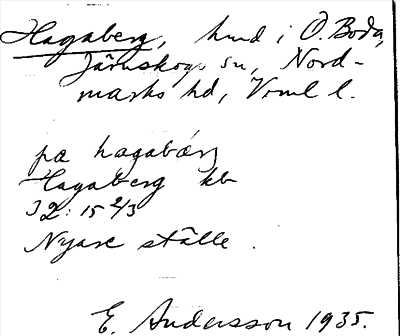 Hagaberg, hmd i Ö. Boda,
Järnskogs sn, Nord-
marks hd, Vrml l.
pɑ hagabárj
Hagaberg kb
32: 15 2/3
Nyare ställe.
E. Andersson 1935.